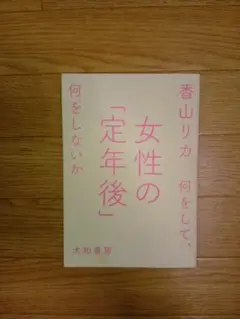 香山リカ 何をして、
女性の
「定年後」
何をしないか
大和書房